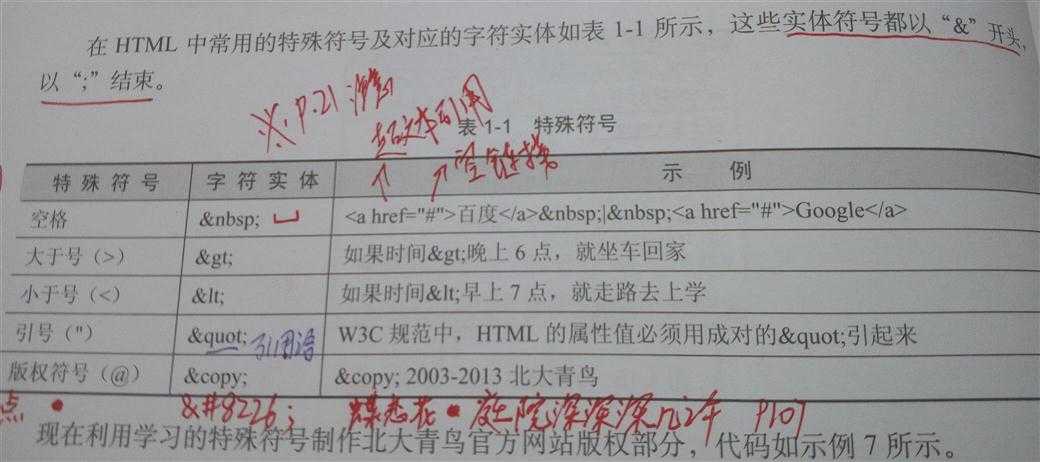 在 HTML 中常用的特殊符号及对应的字符实体如表 1-1 所示，这些实体符号都以“&”开头，
以“;”结束。
※ P.21
超文本引用
空链接
表 1-1 特殊符号
特 殊 符 号 字 符 实 体 示 例
空格 &nbsp; <a href="#">百度</a>&nbsp;|&nbsp;<a href="#">Google</a>
大于号（>） &gt; 如果时间&gt;晚上 6 点，就坐车回家
小于号（<） &lt; 如果时间&lt;早上 7 点，就走路去上学
引号（"） &quot; 引用语 W3C 规范中，HTML 的属性值必须用成对的&quot;引起来
版权符号（@） &copy; &copy; 2003-2013 北大青鸟
点 • &#8226; 蝶恋花•庭院深深深几许 P107
现在利用学习的特殊符号制作北大青鸟官方网站版权部分，代码如示例 7 所示。